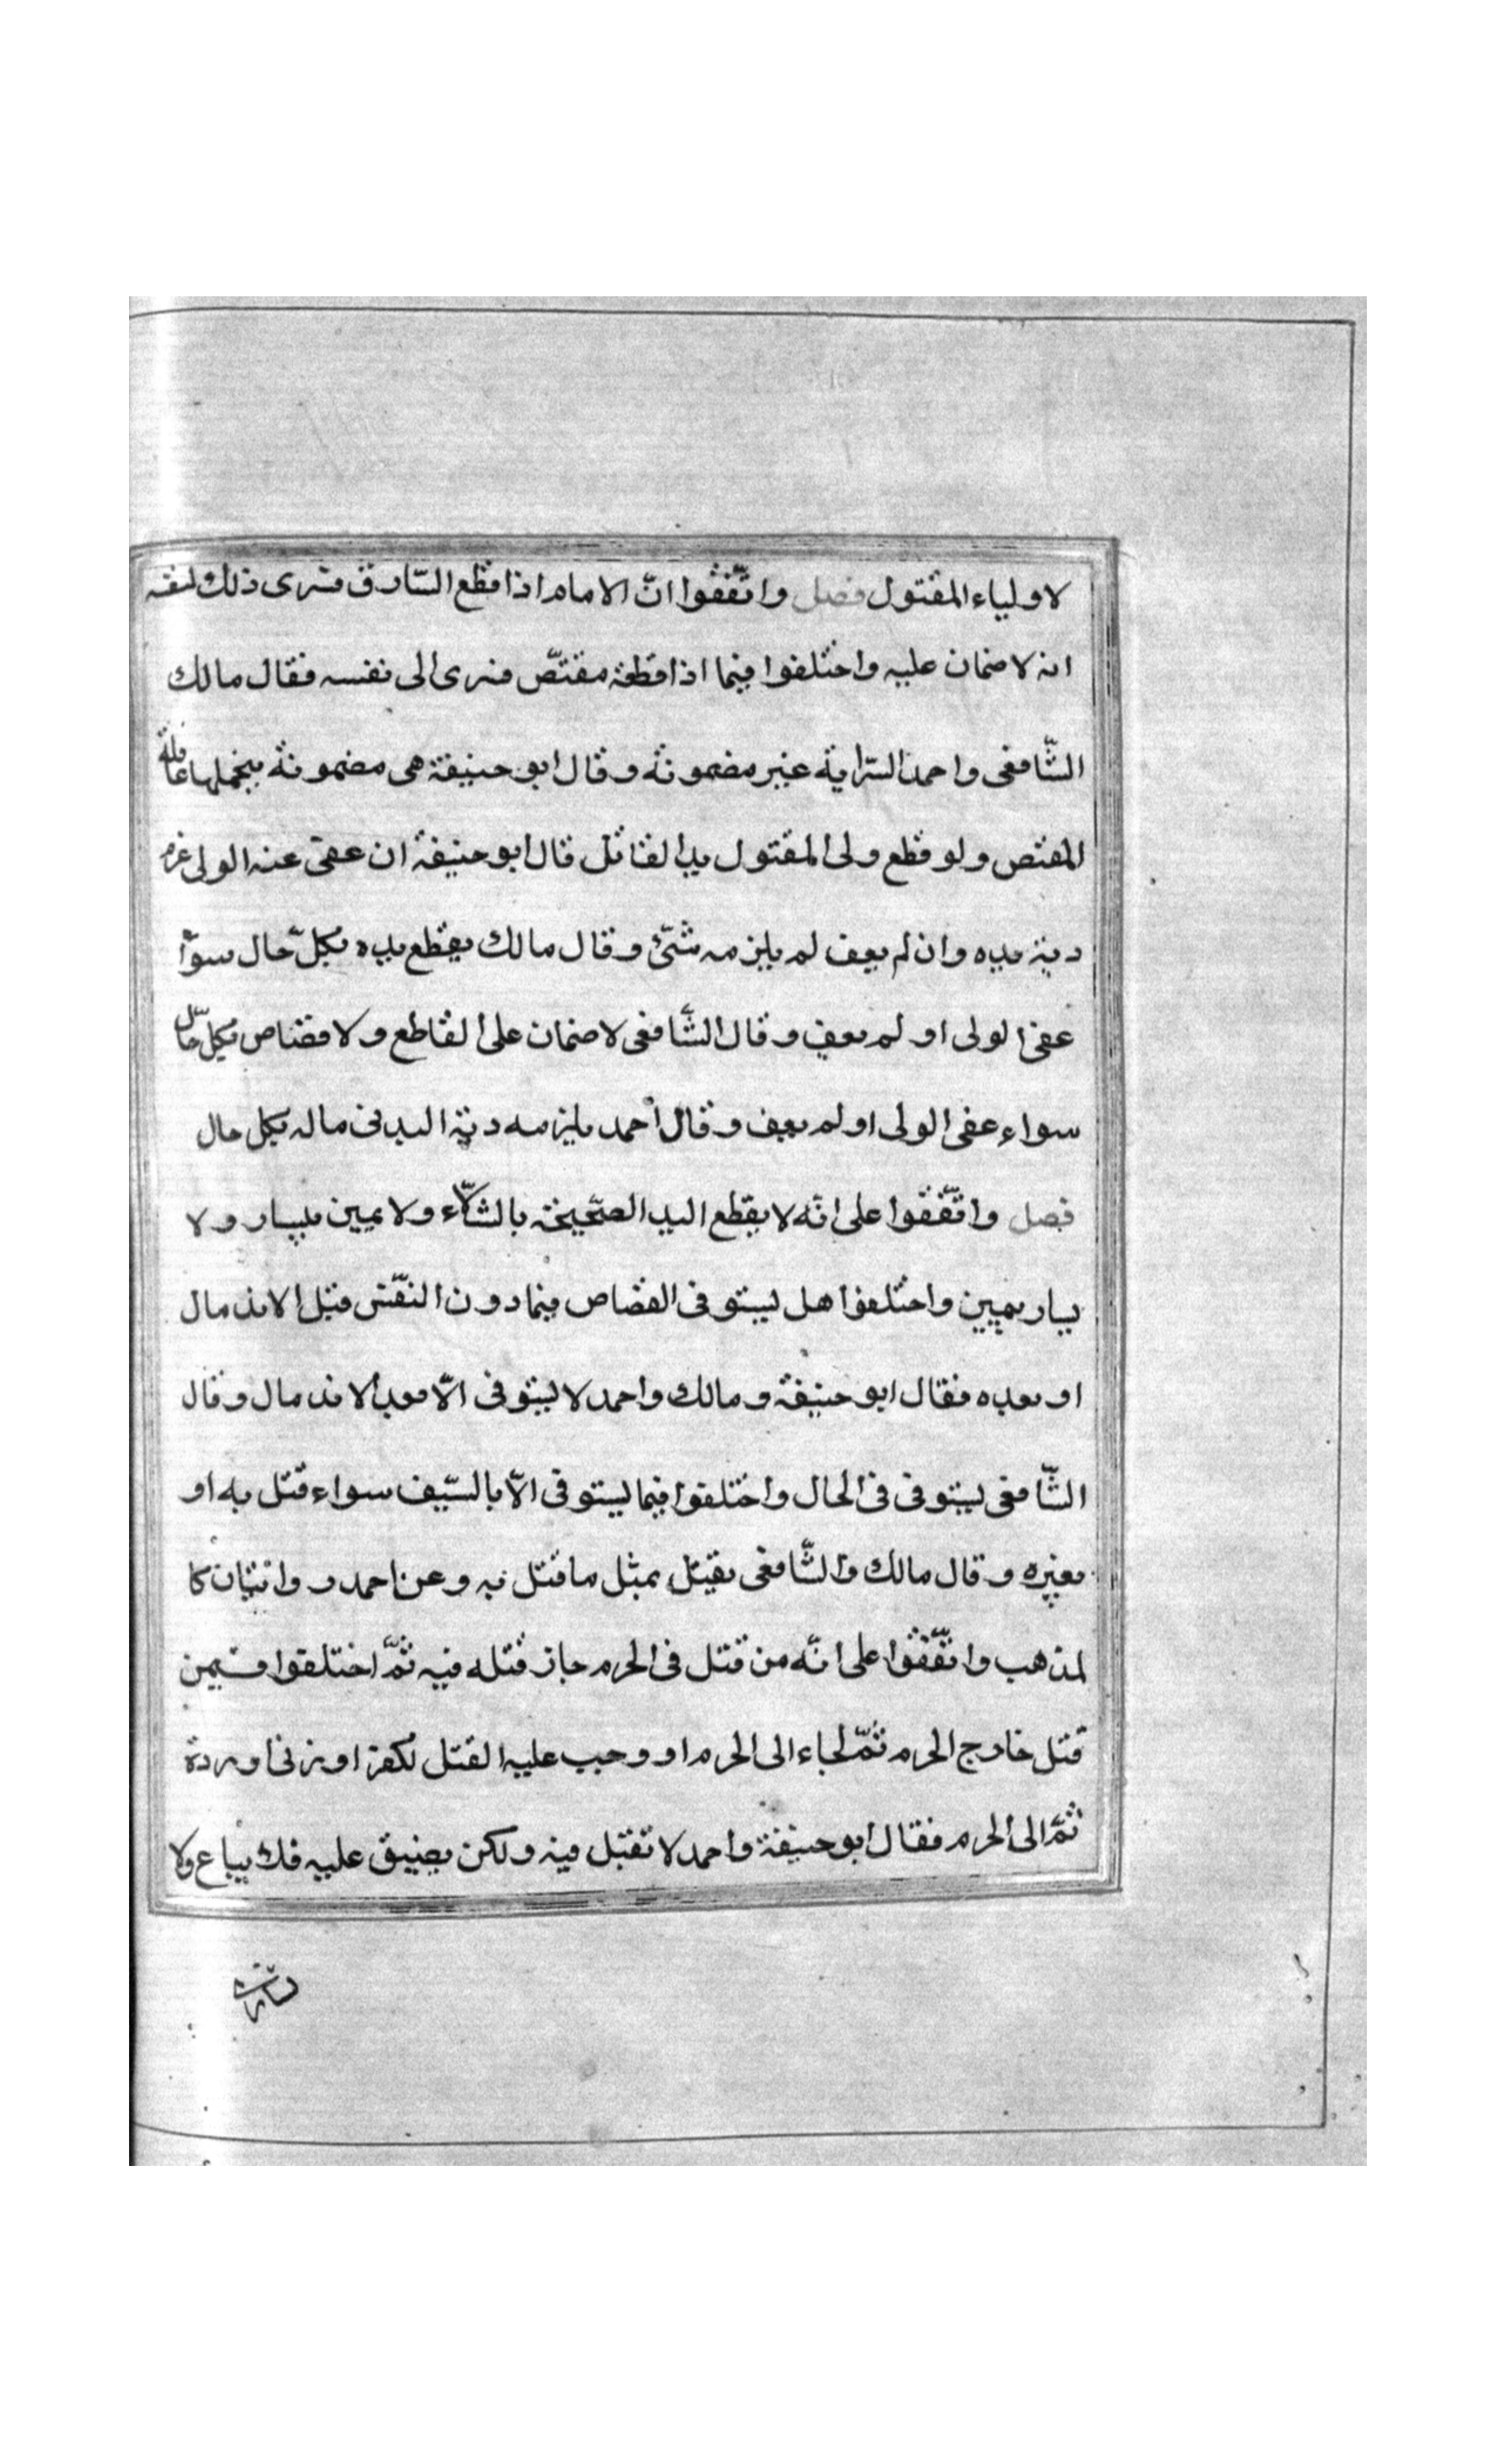 لاولياء المقتول فصل واتّفقوا انّ الامام اذا قطع السّارق فسرى ذلك لنفسه
انه لا ضمان عليه واختلفوا فيما اذا قطعه مقتصّ فسرى الى نفسه فقال مالك
الشّافعى واحمد السّراية غير مضمونة وقال ابو حنيفة هى مضمونة يتحملها عاقلة
المقتص ولو قطع ولى المقتول يد القاتل قال ابو حنيفة ان عفى عنه الولى غرم
دية يده وان لم يعف لم يلزمه شئ وقال مالك يقطع يده بكلّ حال سوآء
عفى الولى او لم يعف وقال الشّافعى لا ضمان على القاطع ولا قصاص بكل حال
سواء عفى الولى او لم يعف وقال أحمد يلزمه دية اليد فى ماله بكل حال
فصل واتّفقوا على انّه لا يقطع اليد الصّحيحة بالشلّاء ولا يمين بيسار ولا
يسار بيمين واختلفوا هل يستوفى القصاص فيما دون النفس قبل الاندمال
او بعده فقال ابو حنيفة ومالك واحمد لا يستوفى الّا بعد الاندمال وقال
الشّافعى يستوفى فى الحال واختلفوا فيما يستوفى الّا بالسّيف سواء قتل به او
بغيره وقال مالك والشّافعى يقتل بمثل ما قتل به وعن احمد روايتان كا
لمذهب واتّفقوا على انّه من قتل فى الحرم جاز قتله فيه ثمّ اختلفوا فيمن
قتل خارج الحرم ثمّ لجاء الى الحرم او وجب عليه القتل لكفر او زنى او ردة
ثمّ الى الحرم فقال ابو حنيفة واحمد لا تقتل فيه ولكن يضيق عليه فلا يباع ولا